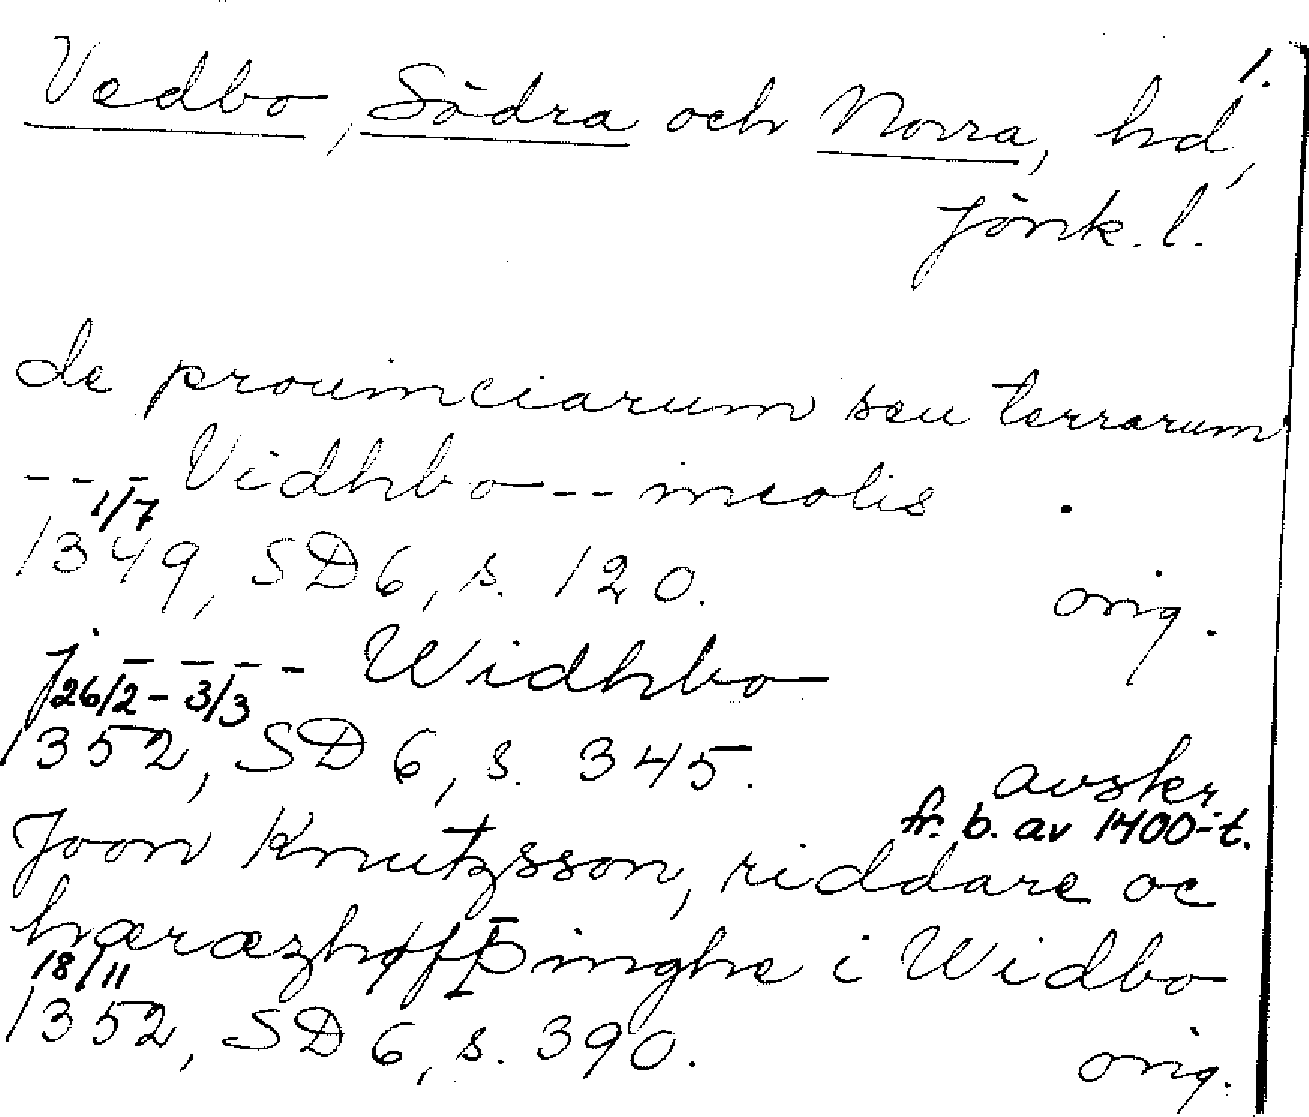 1.
Vedbo, Södra och Norra, hd,
Jönk. l.
de prouinciarum seu terrarum
---- Vidhbo -- incolis
1/7
1349, SD 6, s. 120. orig.
j ---- Widhbo
26/2 - 3/3
1352, SD 6, s. 345. avskr.
fr. b. av 1400-t.
Joon Knutzsson, riddare oc
hæræzhøffþinghe i Widbo
18/11
1352, SD 6, s. 390. orig.